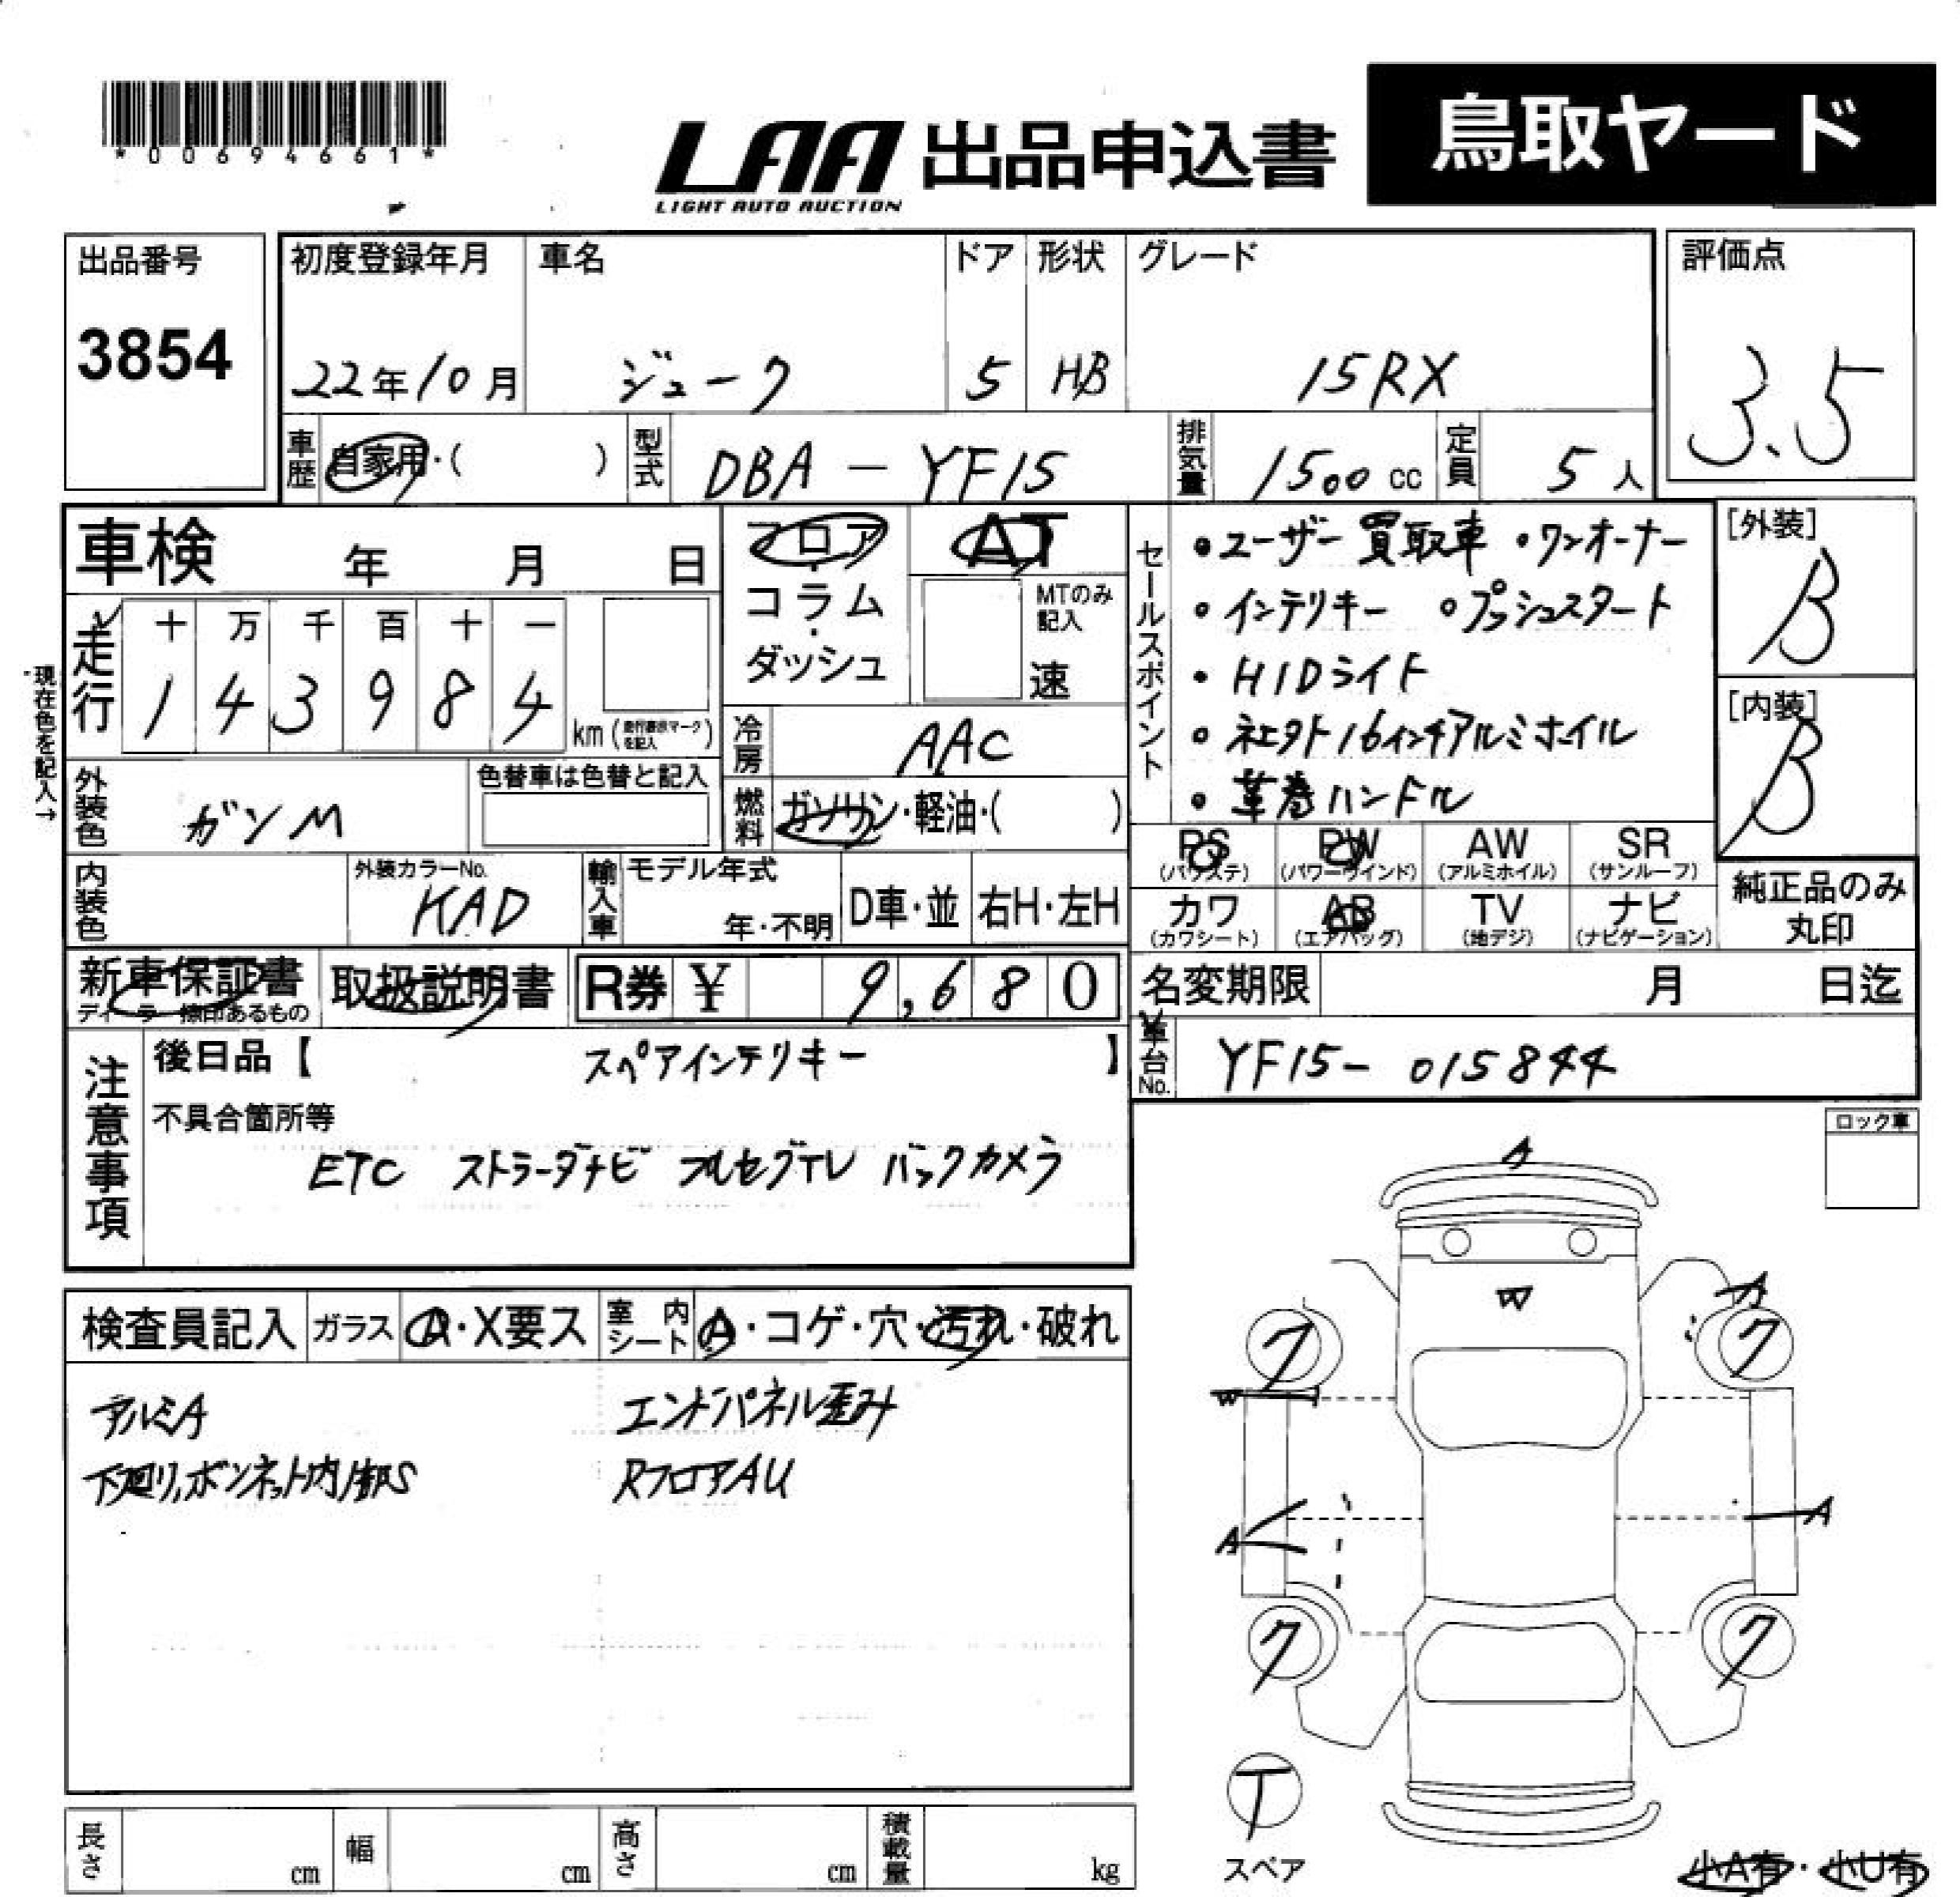 *00694661*
LAA 出品申込書
LIGHT AUTO AUCTION
鳥取ヤード
出品番号
3854
初度登録年月
22年10月
車名
ジューク
ドア
5
形状
HB
グレード
15RX
評価点
3.5
車歴
自家用・( )
型式
DBA - YF15
排気量
1500 cc
定員
5 人
車検 年 月 日
フロア・コラム・ダッシュ
AT
MTのみ記入
速
セールスポイント
・ユーザー買取車 ・ワンオーナー
・インテリキー ・プッシュスタート
・HIDライト
・社外16インチアルミホイル
・革巻ハンドル
[外装]
B
[内装]
B
現在色を記入→
走行
十 万 千 百 十 一
1 4 3 9 8 4
km(走行表示マークを記入)
冷房
AAC
外装色
ガンM
色替車は色替と記入
燃料
ガソリン・軽油・( )
PS
(パワステ)
PW
(パワーウインド)
AW
(アルミホイル)
SR
(サンルーフ)
カワ
(カワシート)
AB
(エアバッグ)
TV
(地デジ)
ナビ
(ナビゲーション)
純正品のみ
丸印
内装色
外装カラーNo.
KAD
輸入車
モデル年式
年・不明
D車・並
右H・左H
新車保証書
ディーラー捺印あるもの
取扱説明書
R券 ¥ 9,680
名変期限 月 日迄
車台No.
YF15- 015844
注意事項
後日品【 スペアインテリキー 】
不具合箇所等
ETC ストラーダナビ フルセグTV バックカメラ
ロック車
検査員記入
ガラス
A・X要ス
室内シート
A・コゲ・穴・汚れ・破れ
アルミA
エンドパネル歪み
下廻り,ボンネット内部S
RフロアAU
A
W
A
フ
ク
W
A
A
ク
ク
T
スペア
長さ cm
幅 cm
高さ cm
積載量 kg
小A有・小U有